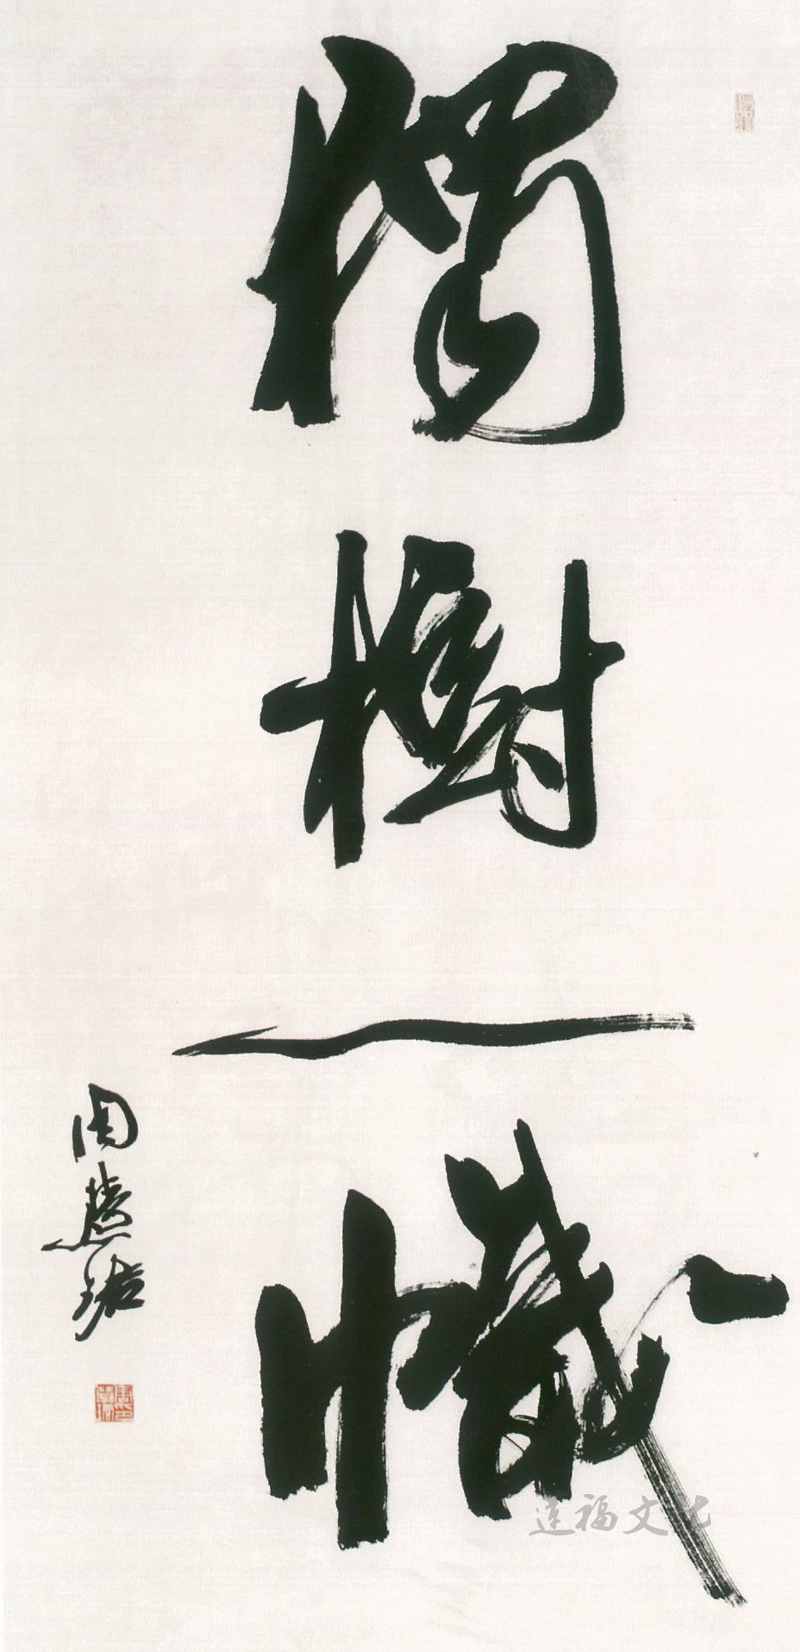 獨樹一幟
周慧珺
連福文化